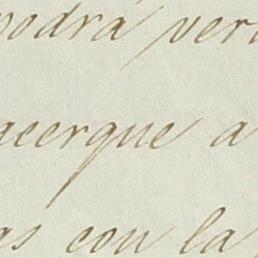 podrá ver
acerque a
as con la